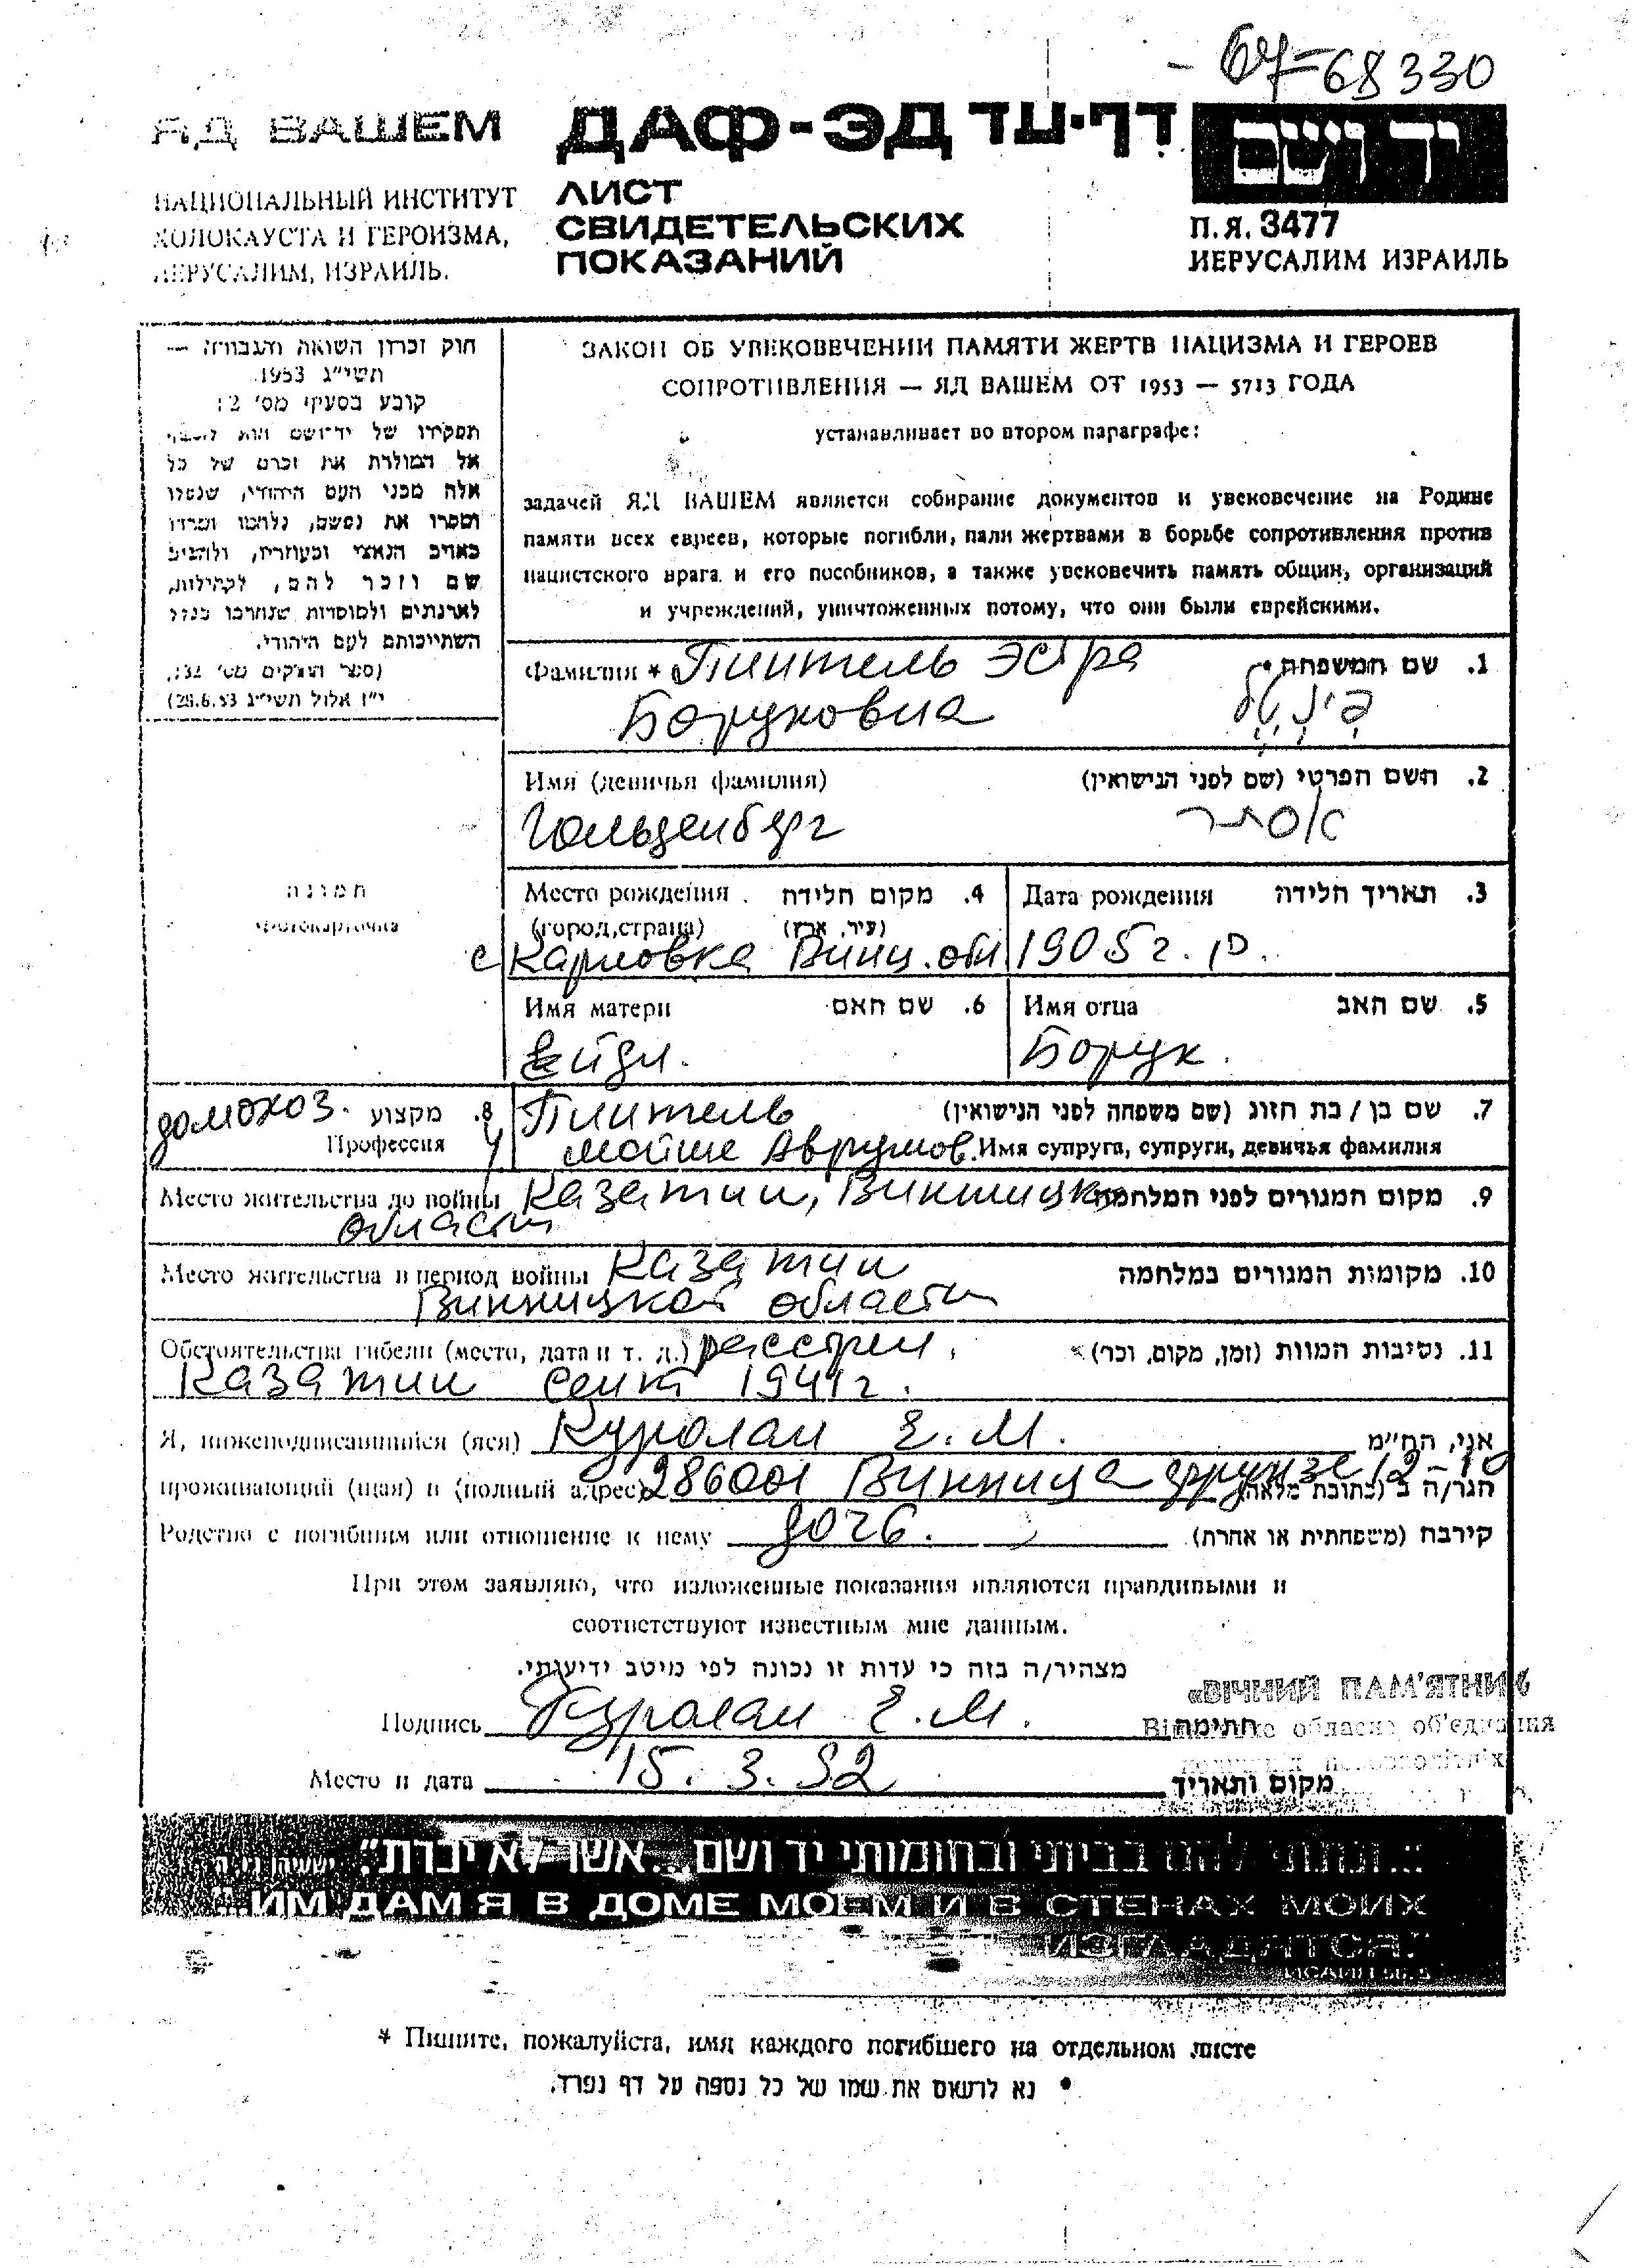 68330
ЯД ВАШЕМ ДАФ-ЭД דף-עד יד ושם
НАЦИОНАЛЬНЫЙ ИНСТИТУТ
ХОЛОКАУСТА И ГЕРОИЗМА,
ИЕРУСАЛИМ, ИЗРАИЛЬ.
ЛИСТ
СВИДЕТЕЛЬСКИХ
ПОКАЗАНИЙ
П.Я. 3477
ИЕРУСАЛИМ ИЗРАИЛЬ
חוק זכרון השואה והגבורה —
תשי״ג 1953
קובע בסעיף מס׳ 2:
תפקידו של יד־ושם הוא לאסוף
אל המולדת את זכרם של כל
אלה מבני העם היהודי, שנפלו
ומסרו את נפשם, נלחמו ומרדו
באויב הנאצי ובעוזריו, ולהציב
שם וזכר להם, לקהילות,
לארגונים ולמוסדות שנחרבו בגלל
השתייכותם לעם היהודי.
(ספר החוקים מס׳ 132,
י״ז אלול תשי״ג 28.8.53)
ЗАКОН ОБ УВЕКОВЕЧЕНИИ ПАМЯТИ ЖЕРТВ НАЦИЗМА И ГЕРОЕВ
СОПРОТИВЛЕНИЯ — ЯД ВАШЕМ ОТ 1953 — 5713 ГОДА
устанавливает во втором параграфе:
задачей ЯД ВАШЕМ является собирание документов и увековечение на Родине
памяти всех евреев, которые погибли, пали жертвами в борьбе сопротивления против
нацистского врага и его пособников, а также увековечить память общин, организаций
и учреждений, уничтоженных потому, что они были еврейскими.
Фамилия * Плитель Эстра שם המשפחה • .1
Боруховна
Имя (девичья фамилия) השם הפרטי (שם לפני הנישואין) .2
Гольденберг אסתר
תמונה
фотокарточка
Место рождения מקום הלידה .4 Дата рождения תאריך הלידה .3
(город, страна) (עיר, ארץ)
с Карповка Винц. обл 1905 г. р.
Имя матери שם האם .6 Имя отца שם האב .5
Ейдл. Борух.
домохоз. מקצוע .8 Плитель שם בן / בת הזוג (שם משפחה לפני הנישואין) .7
Профессия мойше Аврумов. Имя супруга, супруги, девичья фамилия
Место жительства до войны Казатин, Винницк. מקום המגורים לפני המלחמה .9
области
Место жительства в период войны Казатин מקומות המגורים במלחמה .10
Винницкой области
Обстоятельства гибели (место, дата и т. д.) расстрел, נסיבות המוות (זמן, מקום, וכו׳) .11
Казатин сент 1941г.
Я, нижеподписавшийся (аяся) Куролап Е. М. אני, הח״מ
проживающий (щая) в (полный адрес) 286001 Винница Фрунзе 12-10 הגר/ה ב (כתובת מלאה)
Родство с погибшим или отношение к нему дочь. קירבה (משפחתית או אחרת)
При этом заявляю, что изложенные показания являются правдивыми и
соответствуют известным мне данным.
מצהיר/ה בזה כי עדות זו נכונה לפי מיטב ידיעתי.
«ВІЧНИЙ ПАМ'ЯТНИК»
Подпись Куролап Е. М. חתימה
обласне об'єднання
Место и дата 15. 3. 92 מקום ותאריך
״...ונתתי להם בביתי ובחומותי יד ושם...אשר לא יכרת״ ישעיהו נו ה
"...ИМ ДАМ Я В ДОМЕ МОЕМ И В СТЕНАХ МОИХ
ИЗГЛАДЯТСЯ."
ИСАЙЯ 56, 5
* Пишите, пожалуйста, имя каждого погибшего на отдельном листе
• נא לרשום את שמו של כל נספה על דף נפרד.